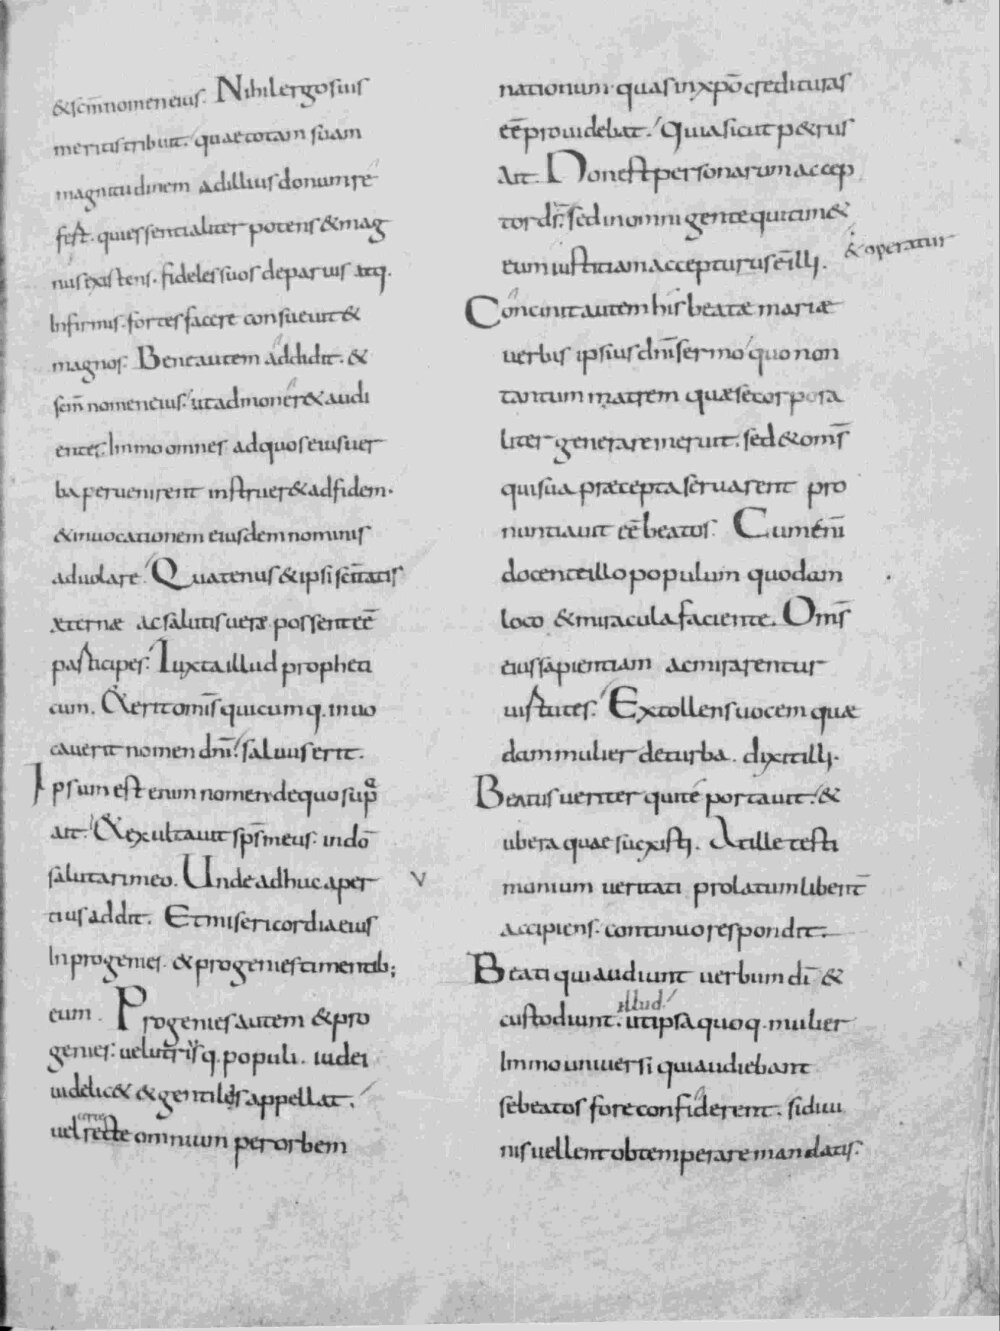 & scm̄ nomen eius. Nihil ergo suis
meritis tribuit. quae totam suam
magnitudinem ad illius donum re
fert. qui essentialiter potens & mag
nus existens. fideles suos de paruis atq.
Infirmis. fortes facere consueuit &
magnos. Bene autem addidit. &
scm̄ nomen eius. ut admoneret & audi
entes. Immo omnes ad quos eius uer
ba peruenirent instruer& ad fidem.
& inuocationem eius dem nominis
aduolare. Quatenus & ipsi scītatis
æternæ ac salutis ueræ possent eē
participes. Iuxta illud propheti
cum. & erit omīs quicumq. inuo
cauerit nomen dnī. saluus erit.
Ipsum est enim nomen de quo sup̄
ait. & exultauit sp̄s meus. in dō
salutari meo. Unde adhuc aper
tius addit. Et misericordia eius
In progenies. & progenies timentib;
eum. Progenies autem & pro
genies. uel utrisq. populi. iudei
uidelic& & gentiles appellat.
uel certe omnium per orbem
nationum quas in xpō credituras
eē prouidebat. Quia sicut p&rus
Ait. Non est personarum accep
tor d̄s. sed in omni gente qui tim&
eum iustitiam acceptus ē illi. & operatur
Concinit autem his beatæ mariæ
uerbis ipsius dnī sermo quo non
tantum matrem quæ se corpora
liter generare meruit. sed & oms̄
qui sua præcepta seruarent pro
nuntiauit eē beatos. Cum enī
docente illo populum quodam
loco & miracula faciente. Oms̄
eius sapientiam ac mirarentur
uirtutes. Extollens uocem quæ
dam mulier de turba. dixit illi.
Beatus uenter qui te portauit. &
ubera quae suxisti. At ille testi
monium ueritati prolatum libent̄
Accipiens. continuo respondit.
Beati qui audiunt uerbum dī &
custodiunt. illud ut ipsa quoq. mulier
Immo uniuersi qui audiebant
se beatos fore confiderent. si diui
nis uellent obtemperare mandatis.